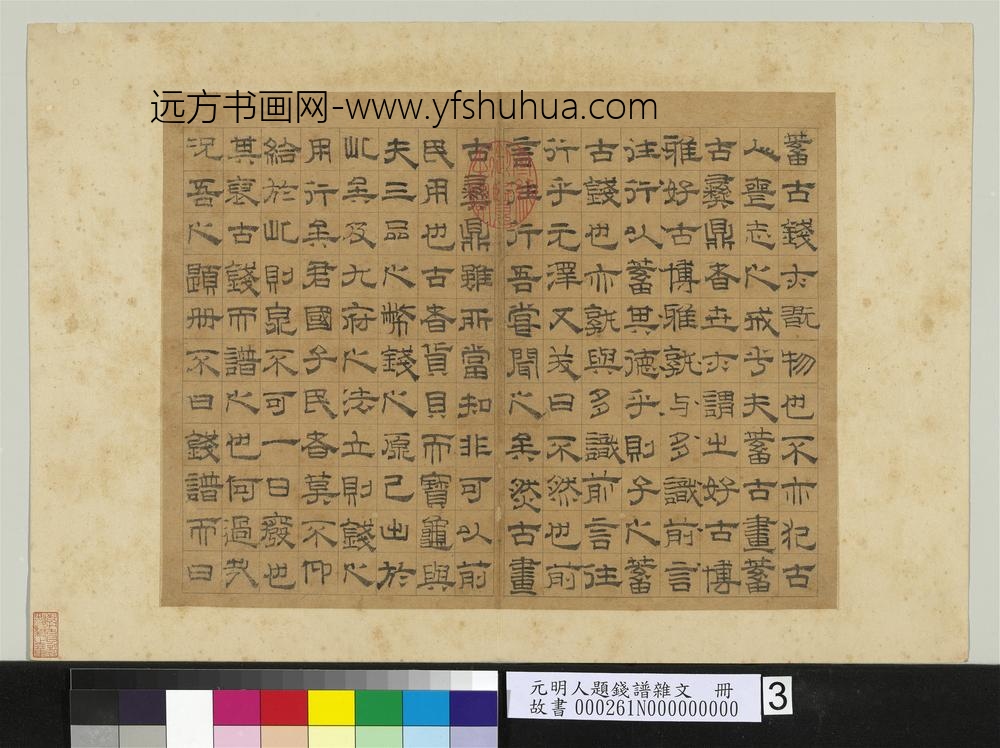 远方书画网-www.yfshuhua.com
蓄古錢亦翫物也不亦犯古
人喪志之戒乎夫蓄古畫蓄
古彝鼎者世亦謂之好古博
雅好古博雅孰与多識前言
往行以蓄其德乎則子之蓄
古錢也亦孰與多識前言往
行乎元澤又笑曰不然也前
言往行吾嘗聞之矣然古畫
古彝鼎雖所當知非可以前
民用也古者貨貝而寶龜與
夫三品之幣錢之原已出於
此矣及九府之法立則錢之
用行矣君國子民者莫不仰
給於此則泉不可一日廢也
其裒古錢而譜之也何過哉
況吾之題冊不曰錢譜而曰
元明人題錢譜雜文 冊
故書 000261N000000000
3